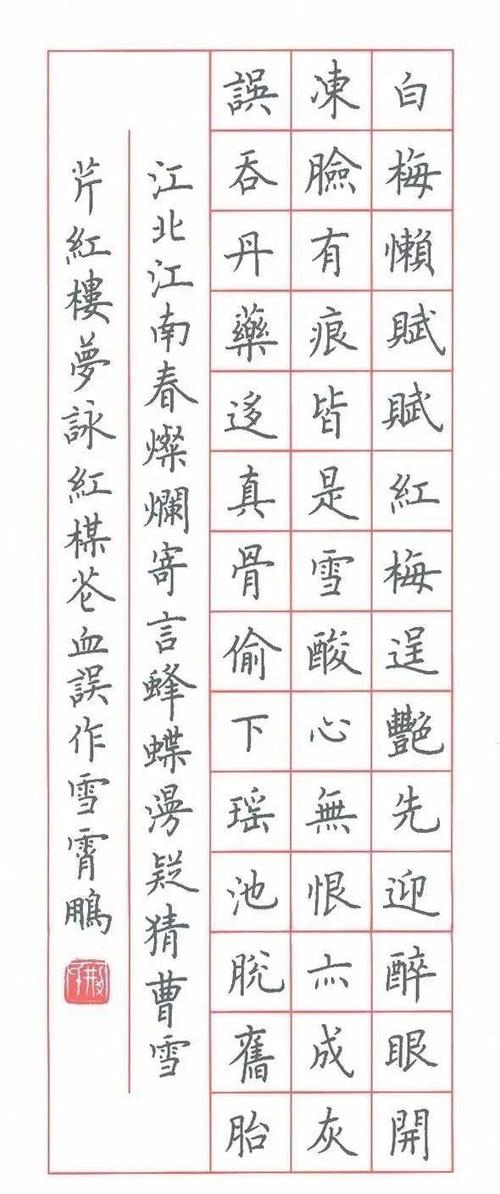 白梅懶賦賦紅梅逞艷先迎醉眼開
凍臉有痕皆是雪酸心無恨亦成灰
誤吞丹藥迻真骨偷下瑶池脫舊胎
江北江南春燦爛寄言蜂蝶漫疑猜曹雪
芹紅樓夢詠紅楳芲血誤作雪霄鵬